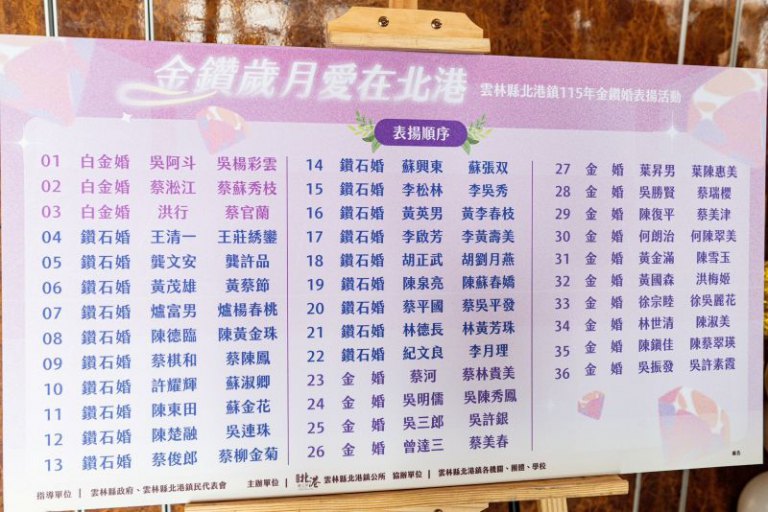 金鑽歲月愛在北港 雲林縣北港鎮115年金鑽婚表揚活動
表揚順序
01 白金婚 吳阿斗 吳楊彩雲
02 白金婚 蔡淞江 蔡蘇秀枝
03 白金婚 洪行 蔡官蘭
04 鑽石婚 王清一 王莊綉鑾
05 鑽石婚 龔文安 龔許品
06 鑽石婚 黃茂雄 黃蔡節
07 鑽石婚 爐富男 爐楊春桃
08 鑽石婚 陳德臨 陳黃金珠
09 鑽石婚 蔡棋和 蔡陳鳳
10 鑽石婚 許耀輝 蘇淑卿
11 鑽石婚 陳東田 蘇金花
12 鑽石婚 陳楚融 吳連珠
13 鑽石婚 蔡俊郎 蔡柳金菊
14 鑽石婚 蘇興東 蘇張双
15 鑽石婚 李松林 李吳秀
16 鑽石婚 黃英男 黃李春枝
17 鑽石婚 李啟芳 李黃壽美
18 鑽石婚 胡正武 胡劉月燕
19 鑽石婚 陳泉亮 陳蘇春嬌
20 鑽石婚 蔡平國 蔡吳平發
21 鑽石婚 林德長 林黃芳珠
22 鑽石婚 紀文良 李月理
23 金婚 蔡河 蔡林貴美
24 金婚 吳明儒 吳陳秀鳳
25 金婚 吳三郎 吳許銀
26 金婚 曾達三 蔡美春
27 金婚 葉昇男 葉陳惠美
28 金婚 吳勝賢 蔡瑞櫻
29 金婚 陳復平 蔡美津
30 金婚 何朗治 何陳翠美
31 金婚 黃金滿 陳雪玉
32 金婚 黃國森 洪梅姬
33 金婚 徐宗睦 徐吳麗花
34 金婚 林世清 陳淑美
35 金婚 陳鎮佳 陳蔡翠瑛
36 金婚 吳振發 吳許素霞
指導單位 | 雲林縣政府、雲林縣北港鎮民代表會 主辦單位 | 北港 雲林縣北港鎮公所 協辦單位 | 雲林縣北港鎮各機關、團體、學校
廣告